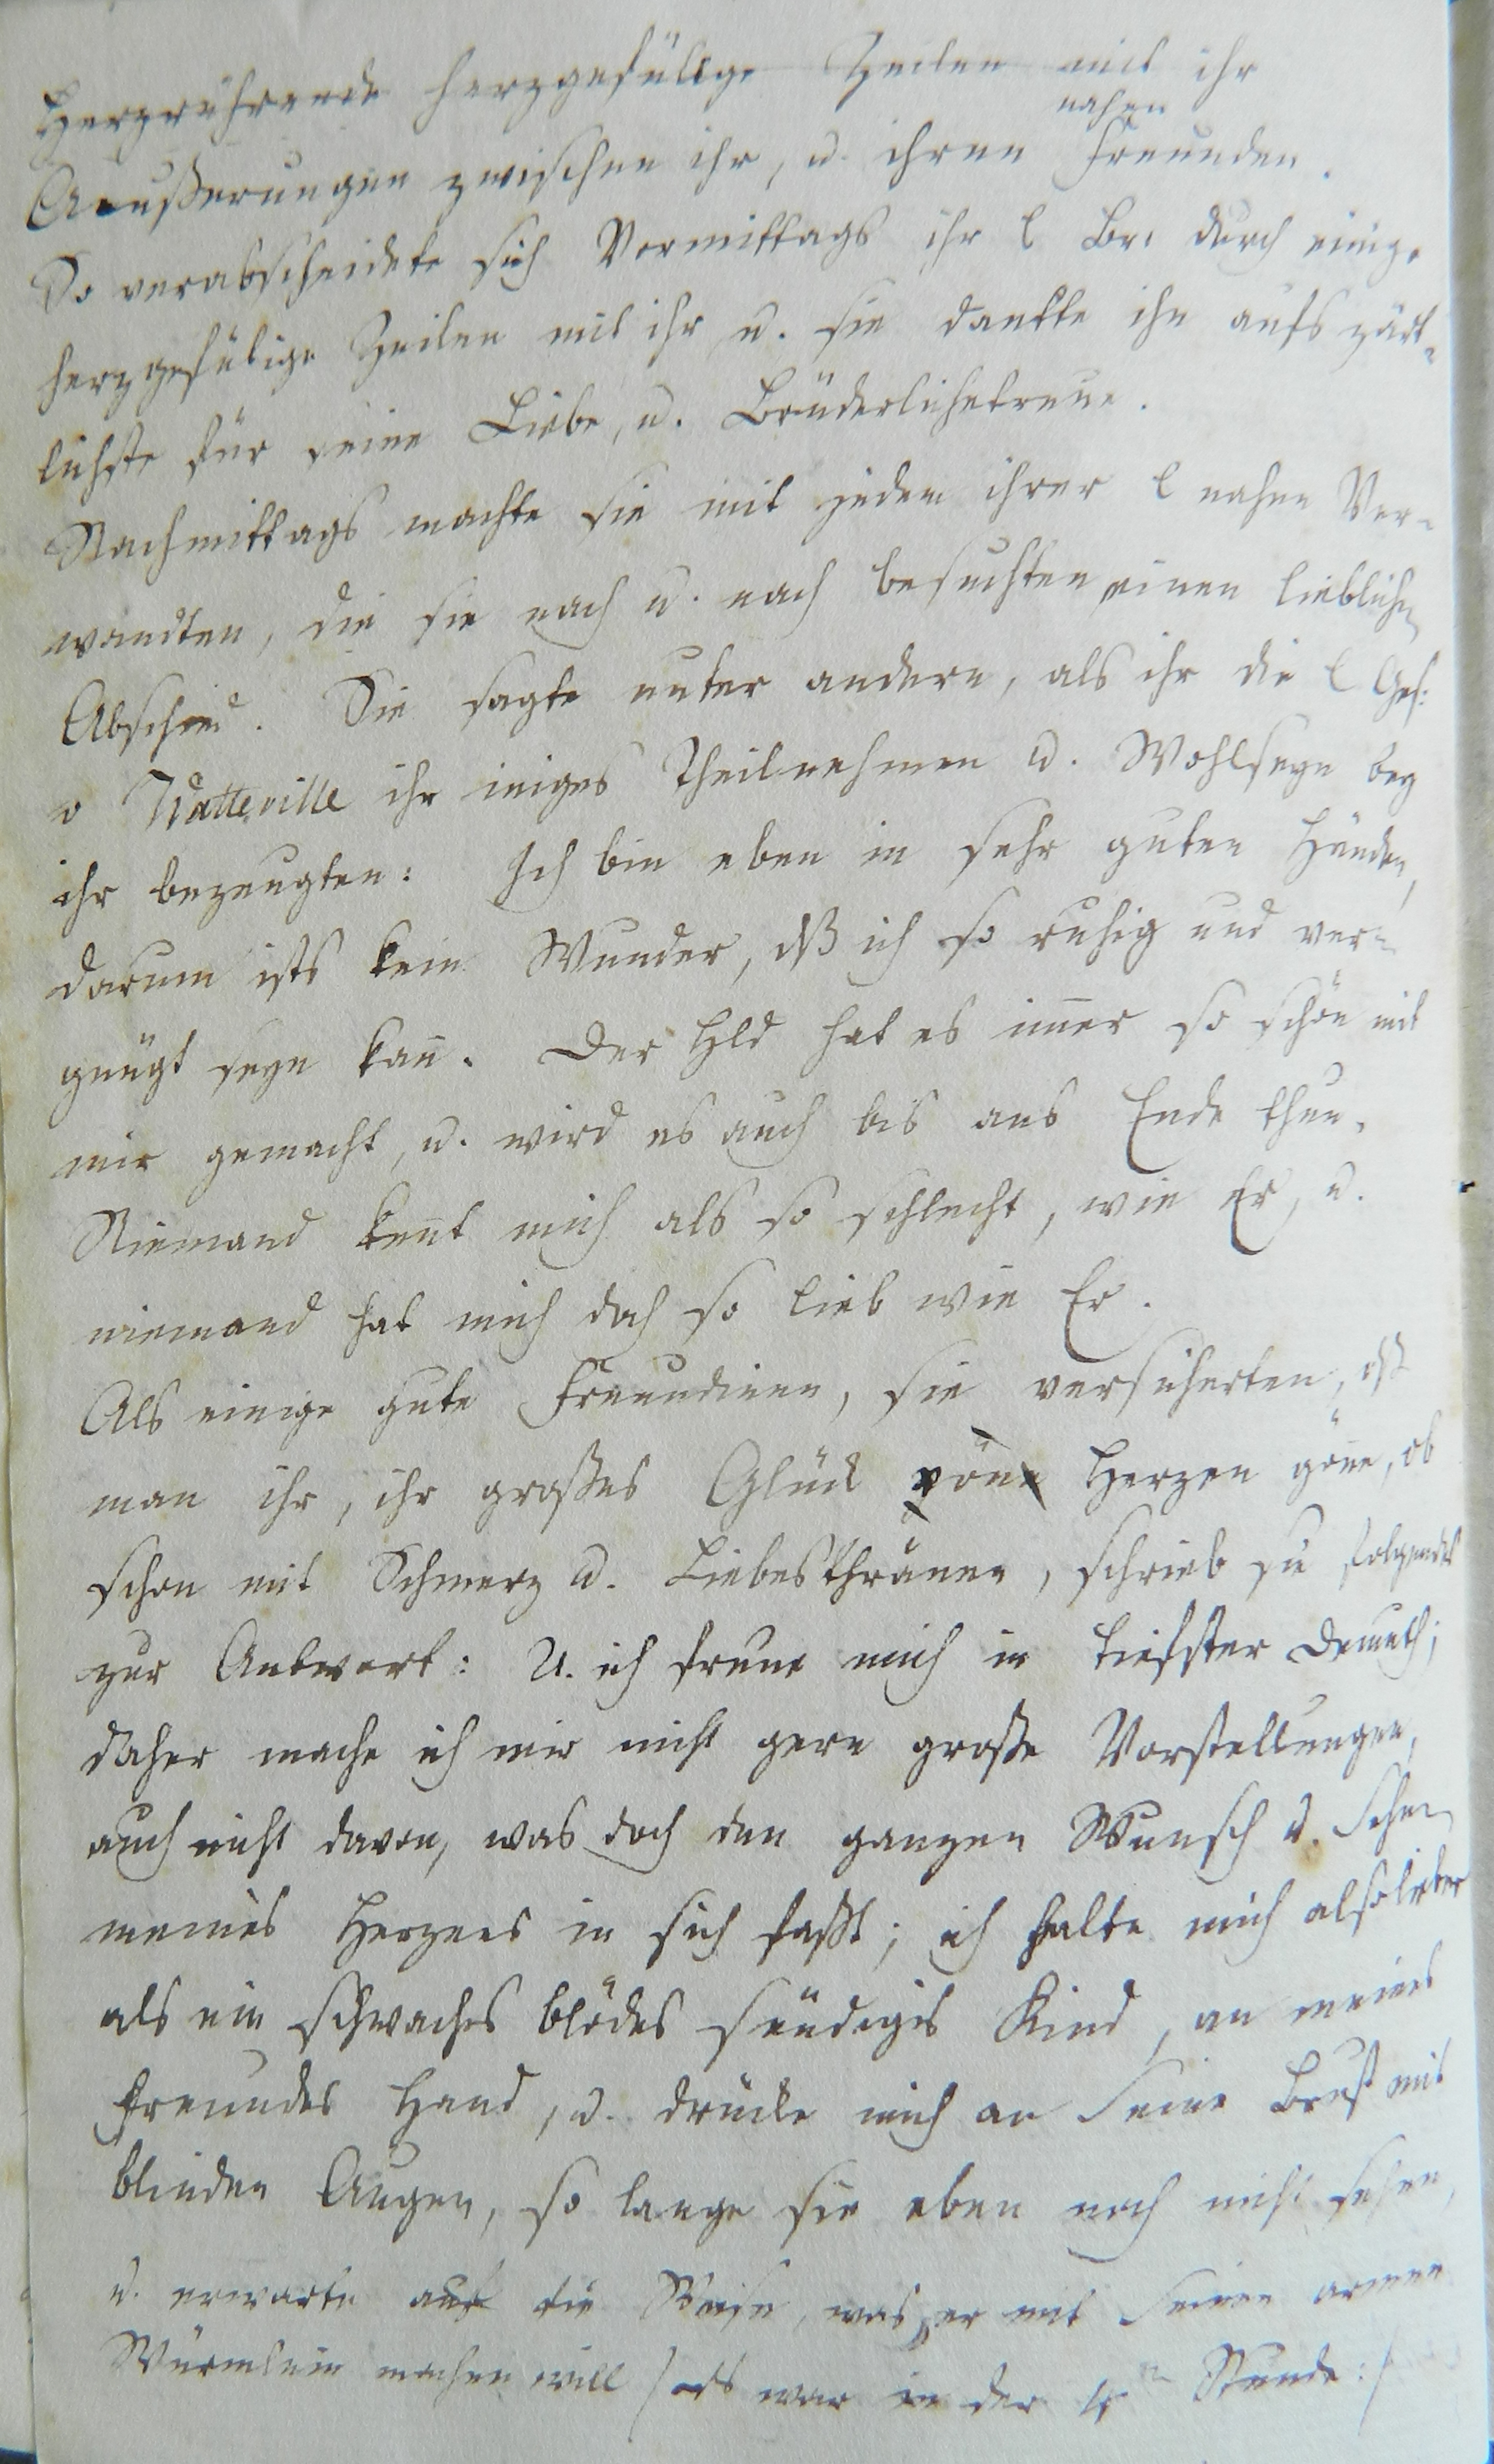 Herzrührende herzgefüllge Zeilen mit ihr
nahen
Aeußerungen zwischen ihr, u. ihren Freunden.
So verabscheidete sich Vormittags ihr l Br. durch einige
herzgefülige Zeilen mit ihr, u. sie dankte ihn aufs zärt-
lichste für seine Liebe, u. Brüderlichetreue.
Nachmittags machte sie mit jeden ihrer l nahen Ver-
wandten, die sie nach u. nach besuchten einen lieblichen
Abschied. Sie sagte unter andern, als ihr die l Gesch:
v Watteville ihr iniges Theilnehmen u. Wohlseyn bey
ihr bezeugten: Ich bin eben in sehr guten Händen,
darum ists kein Wunder, dß ich so ruhig und ver-
gnügt seyn kan̄. Der Hld hat es im̄er so schön mit
mir gemacht, u. wird es auch bis ans Ende thun.
Niemand kent mich als so schlecht, wie Er, u.
niemand hat mich doch so lieb wie Er.
Als einige gute Freundinen, sie versicherten, dß
man ihr, ihr großes Glück von Herzen gön̄e, ob
schon mit Schmerz u. Liebesthränen, schrieb sie folgendes
zur Antwort: U. ich freue mich in tiefster Demuth;
daher mache ich mir nicht gern große Vorstellungen,
auch nicht davon, was doch den ganzen Wunsch u. Sehnen
meines Herzens in sich faßt; ich halte mich also lieber
als ein schwaches blödes sündiges Kind, an meines
Freundes Hand, u. drücke mich an Seine Brust mit
blinden Augen, so lange sie eben noch nicht sehen,
u. erwarte auf die Weise, was er mit Seinen armen
Würmlein machen will /: ds war in der 4ten Stunde :/